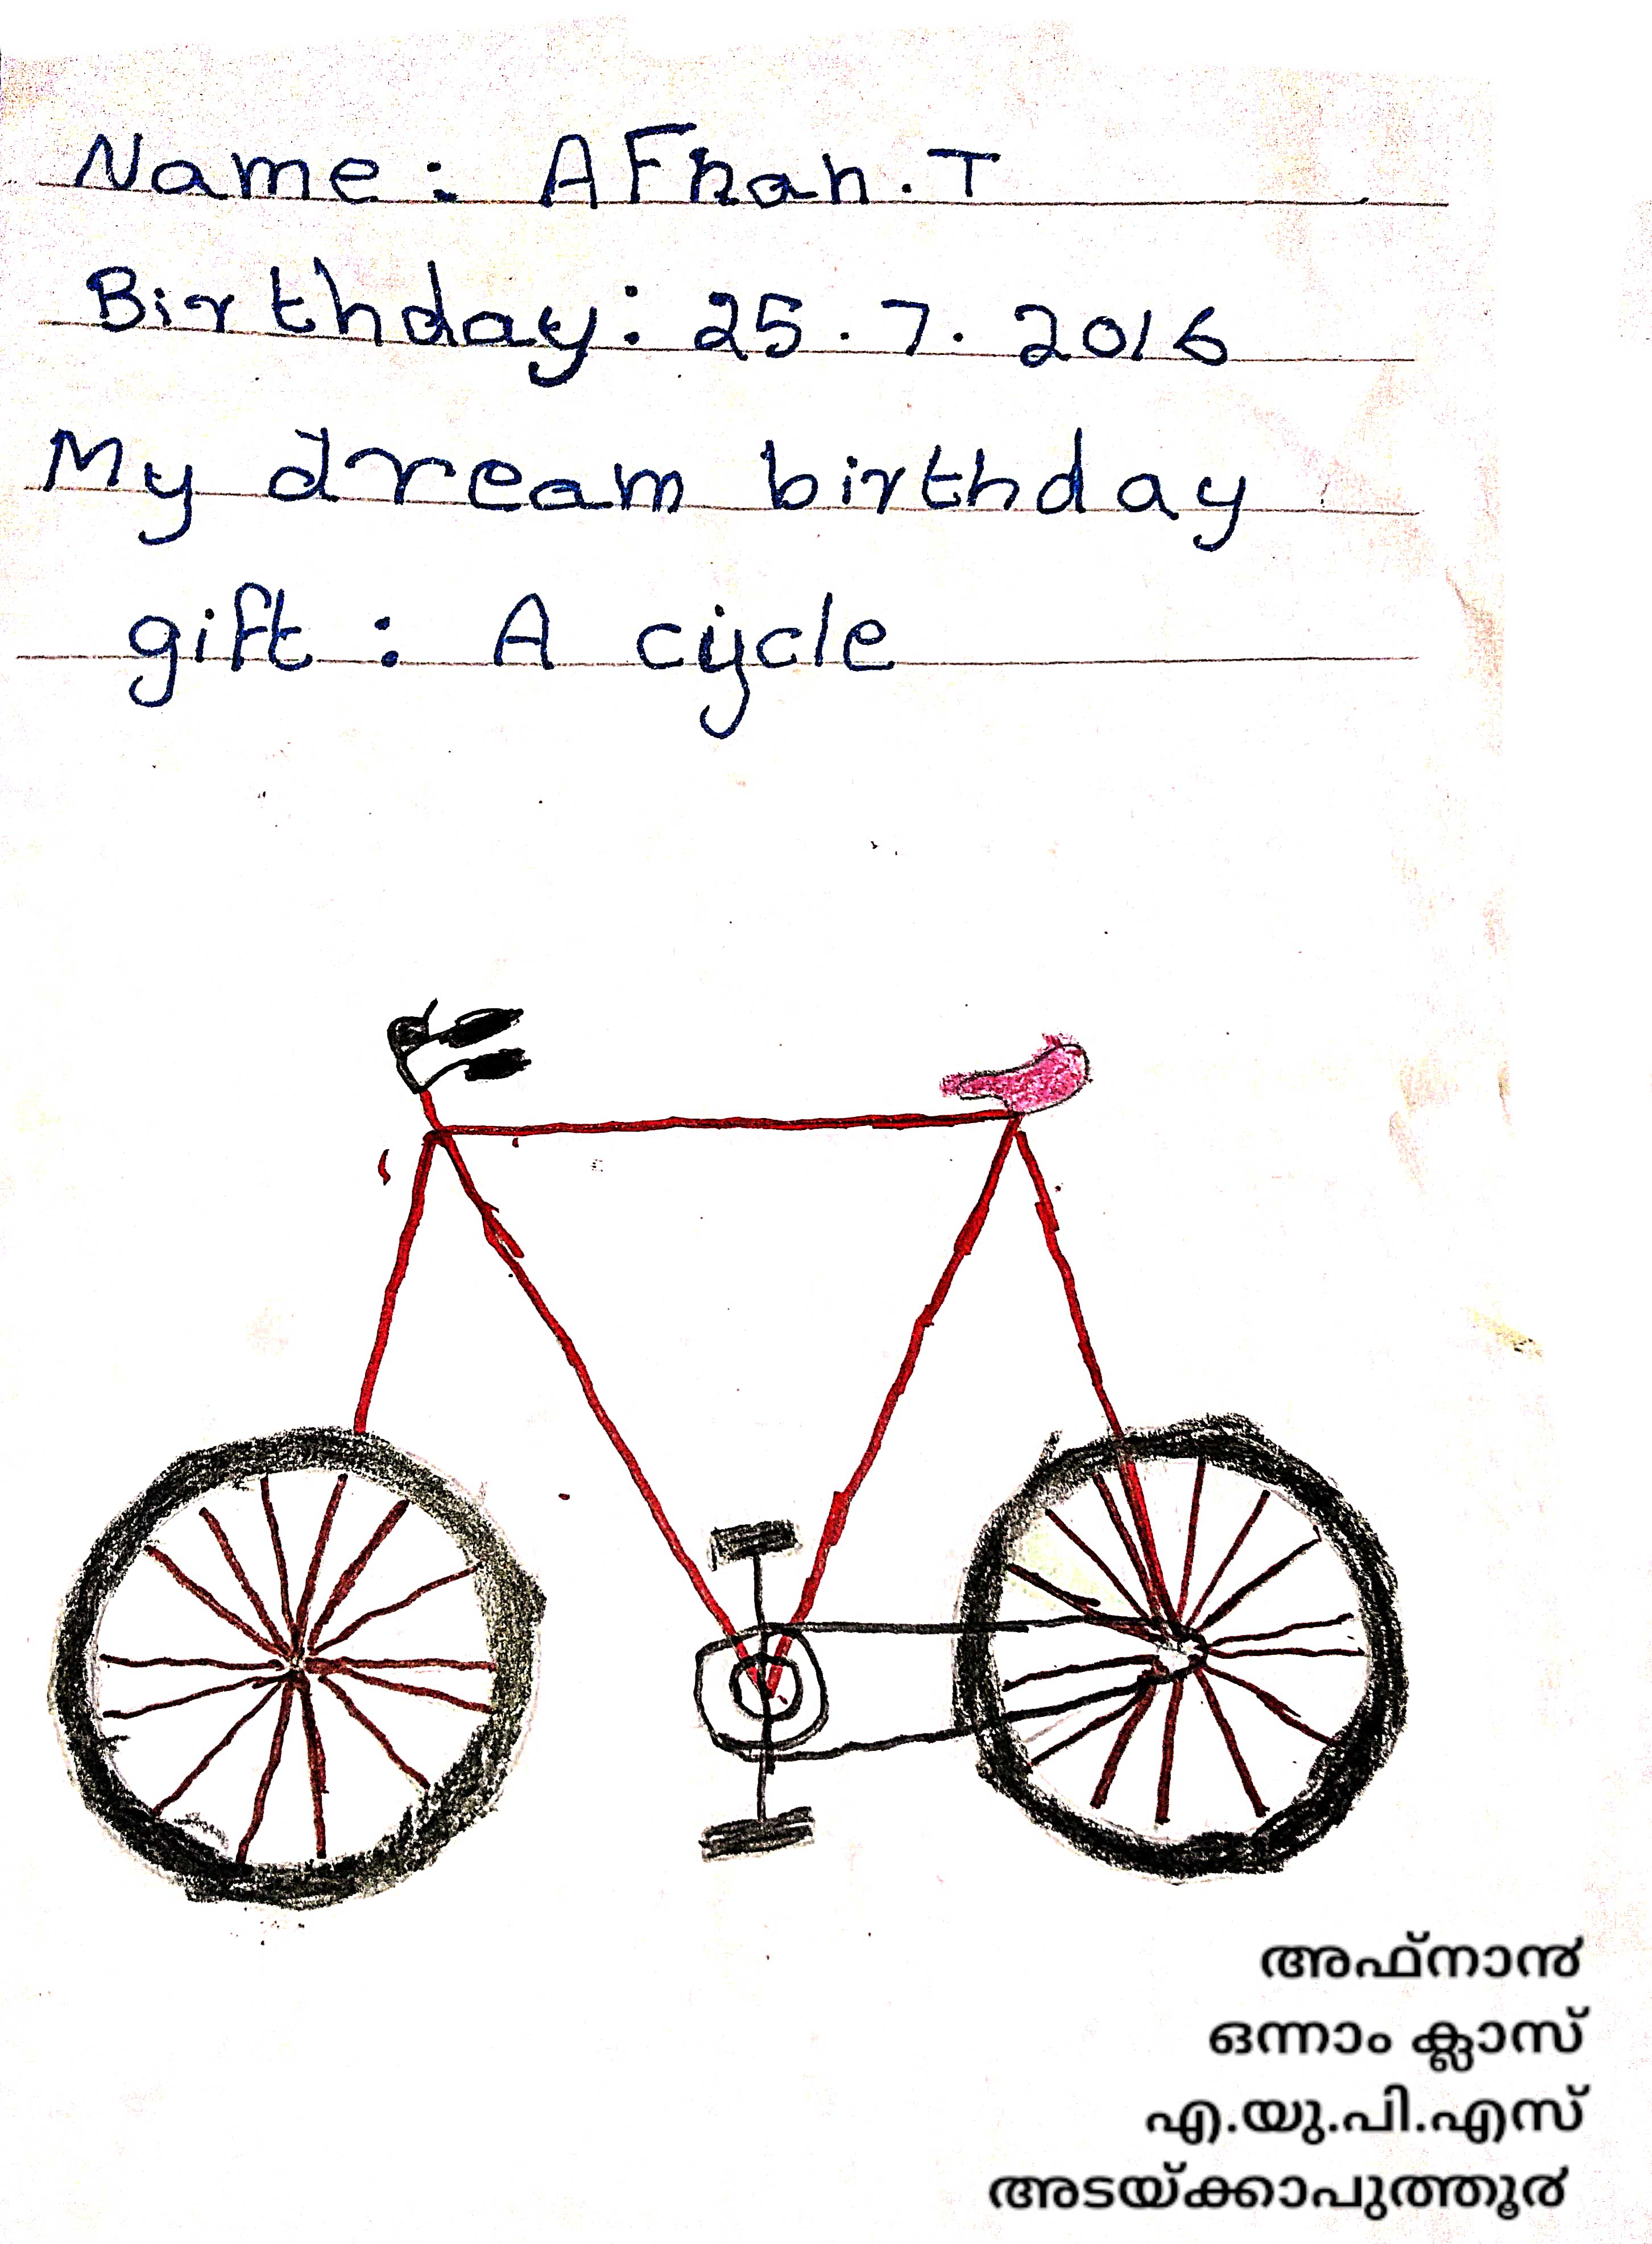 Name: AFnan. T
Birthday: 25. 7. 2016
My dream birthday
gift: A cycle
അഫ്നാൻ
ഒന്നാം ക്ലാസ്
എ.യു.പി.എസ്
അടയ്ക്കാപുത്തൂർ